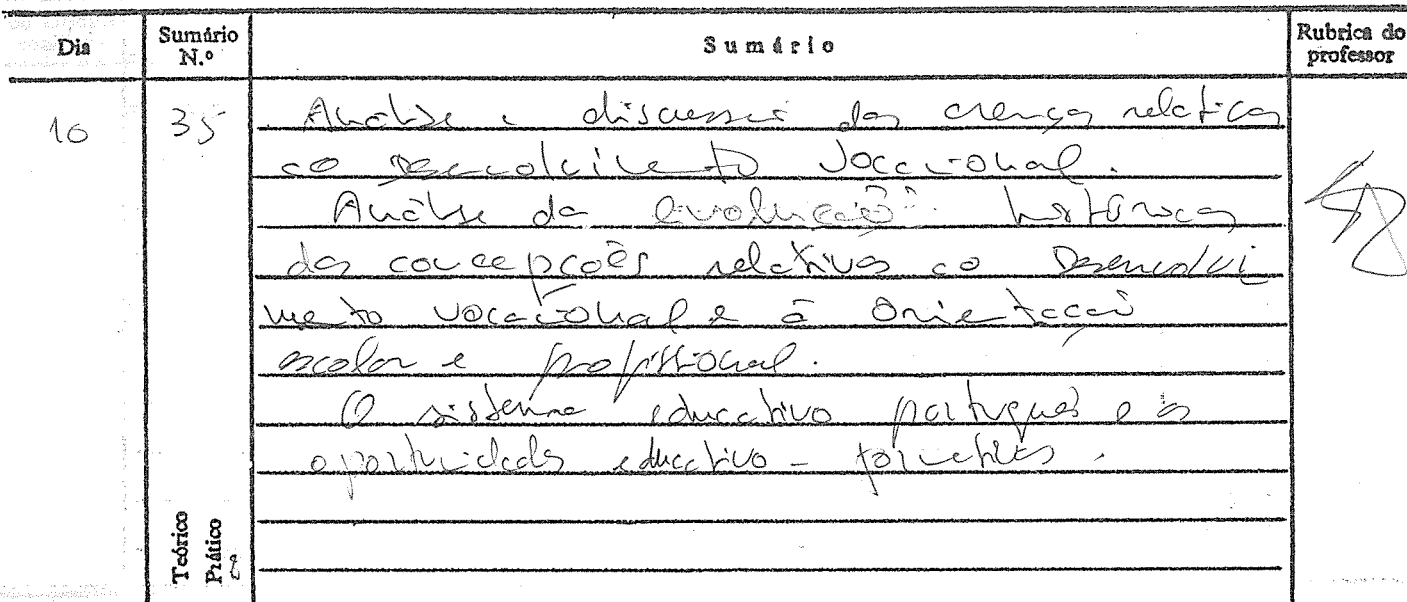 Dia
Sumário N.º
Sumário
Rubrica do professor
10
35
Análise e discussão das crenças relativas
ao desenvolvimento vocacional.
Análise da evolução histórica
das concepções relativas ao Desenvolvi
mento vocacional e à Orientação
escolar e profissional.
O sistema educativo português e as
oportunidades educativo - formativas.
Teórico
Prático